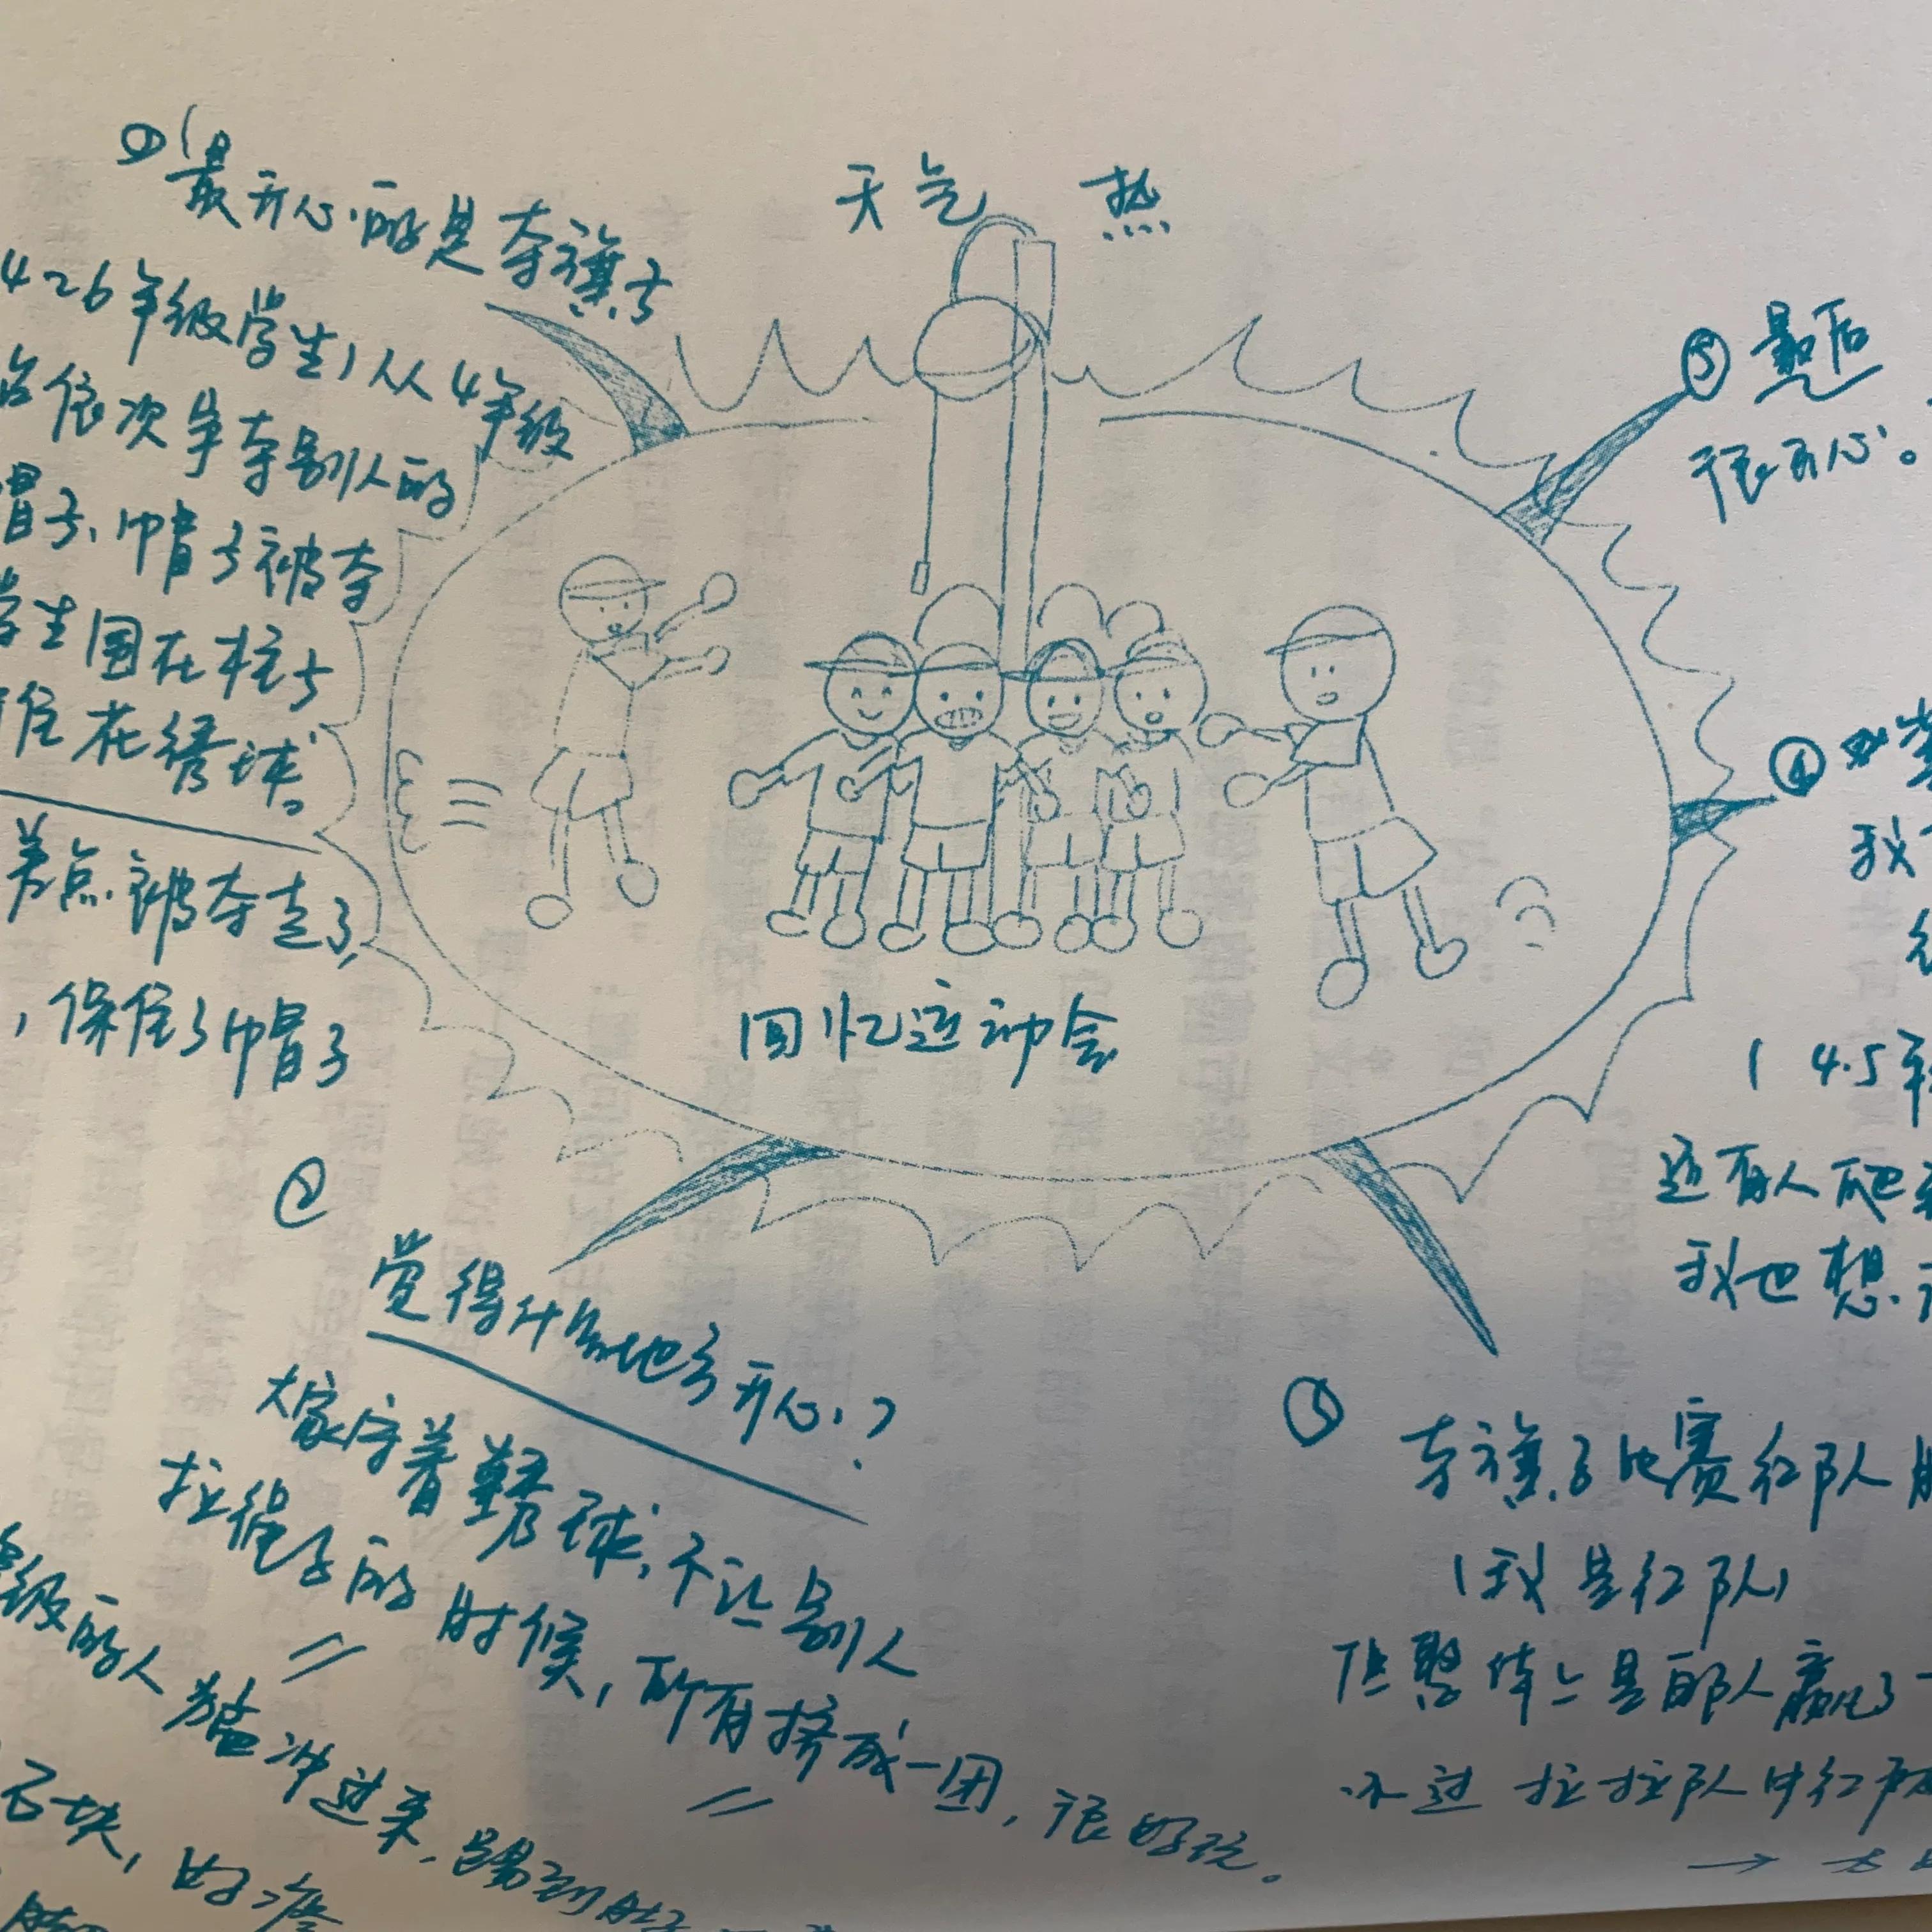 天气 热
① 最开心的是夺旗子
4~6年级学生,从4年级
依次争夺别人的
帽子、帽子被夺
学生围在柱子
住在绣球。
差点被夺走了,
,保住了帽子
回忆运动会
②
觉得什么地方开心?
大家守着绣球,不让别人
拉绳子的时候,所有挤成一团,很好玩。
级的人猛冲过来,踢到肚子
石块,好疼
③
夺旗子比赛红队
(我是红队)
但整体上是白队赢了
不过拉拉队中红队
→
④
我
(4.5年
还有人爬
我也想
⑤ 最后
很开心。